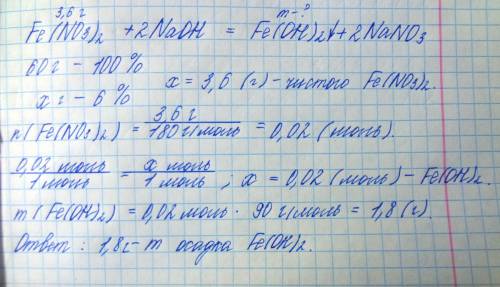 3,6 г m-?
Fe(NO3)2 + 2NaOH = Fe(OH)2↓ + 2NaNO3
60 г - 100 %
x г - 6 %
x = 3,6 (г) - чистого Fe(NO3)2.
n(Fe(NO3)2) = 3,6 г / 180 г/моль = 0,02 (моль).
0,02 моль / 1 моль = x моль / 1 моль ; x = 0,02 (моль) - Fe(OH)2.
m(Fe(OH)2) = 0,02 моль · 90 г/моль = 1,8 (г).
Ответ: 1,8г - m осадка Fe(OH)2.